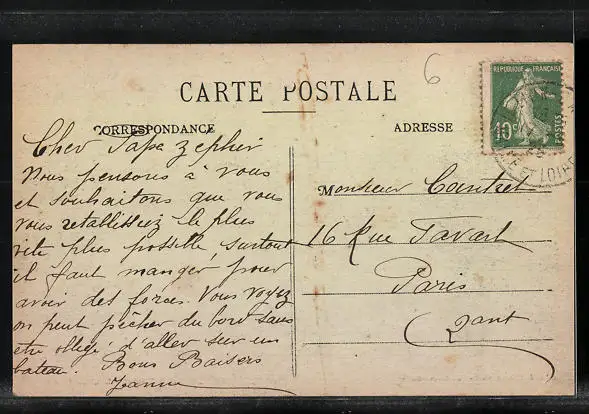 6
RÉPUBLIQUE FRANÇAISE
10c
POSTES
CARTE POSTALE
CORRESPONDANCE
ADRESSE
Cher Papa Zephir
Nous pensons à vous
et souhaitons que vous
vous retablissiez le plus
vite plus possible, surtout
il faut manger pour
avoir des forces. Vous voyez
on peut pêcher du bord sans
etre obligé d'aller sur un
bateau. Bons Baisers
Jeanne
Monsieur
16 Rue Favart
Paris